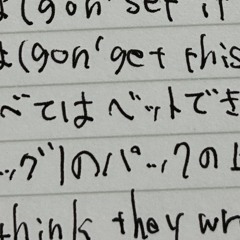 (gon' get it
(gon' get this
べてはベットでき
ッグ)のパックの
think they wr